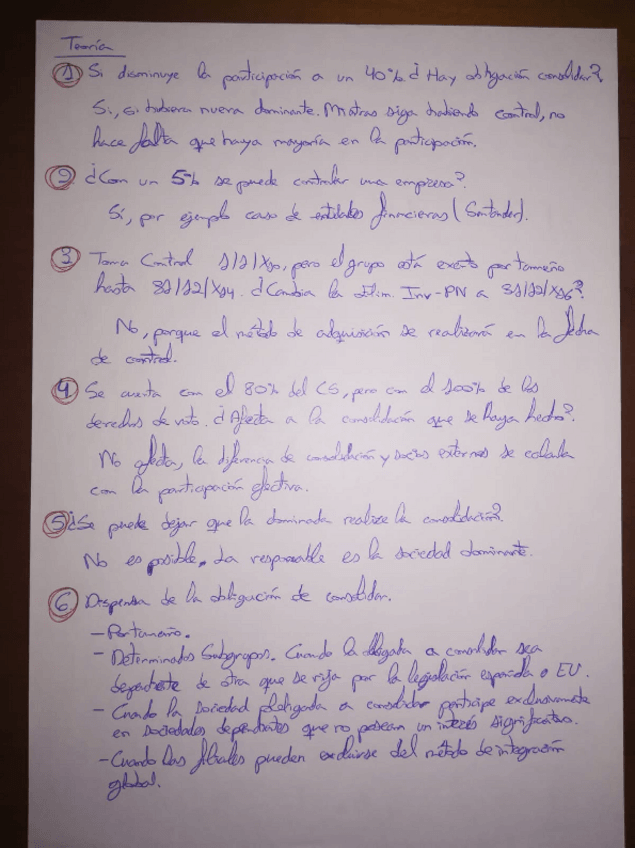 Teoría
① Si disminuye la participación a un 40% ¿Hay obligación consolidar?
Si, si hubiera nueva dominante. Mientras siga habiendo control, no
hace falta que haya mayoría en la participación.
② ¿Con un 5% se puede controlar una empresa?
Sí, por ejemplo caso de entidades financieras (Santander).
③ Toma Control 1/1/X10, pero el grupo está exento por tamaño
hasta 31/12/X14. ¿Cambia la Elim. Inv-PN a 31/12/X16?
No, porque el método de adquisición se realizará en la fecha
de control.
④ Se cuenta con el 80% del CS, pero con el 100% de los
derechos de voto. ¿Afecta a la consolidación que se haya hecho?
No afecta, la diferencia de consolidación y socios externos se calcula
con la participación efectiva.
⑤ ¿Se puede dejar que la dominada realize la consolidación?
No es posible. La responsable es la sociedad dominante.
⑥ Dispensa de la obligación de consolidar.
- Por tamaño.
- Determinados Subgrupos. Cuando la obligada a consolidar sea
dependiente de otra que se rija por la legislación española o EU.
- Cuando la sociedad obligada a consolidar participe exclusivamente
en sociedades dependientes que no posean un interés significativo.
- Cuando las filiales pueden excluirse del método de integración
global.